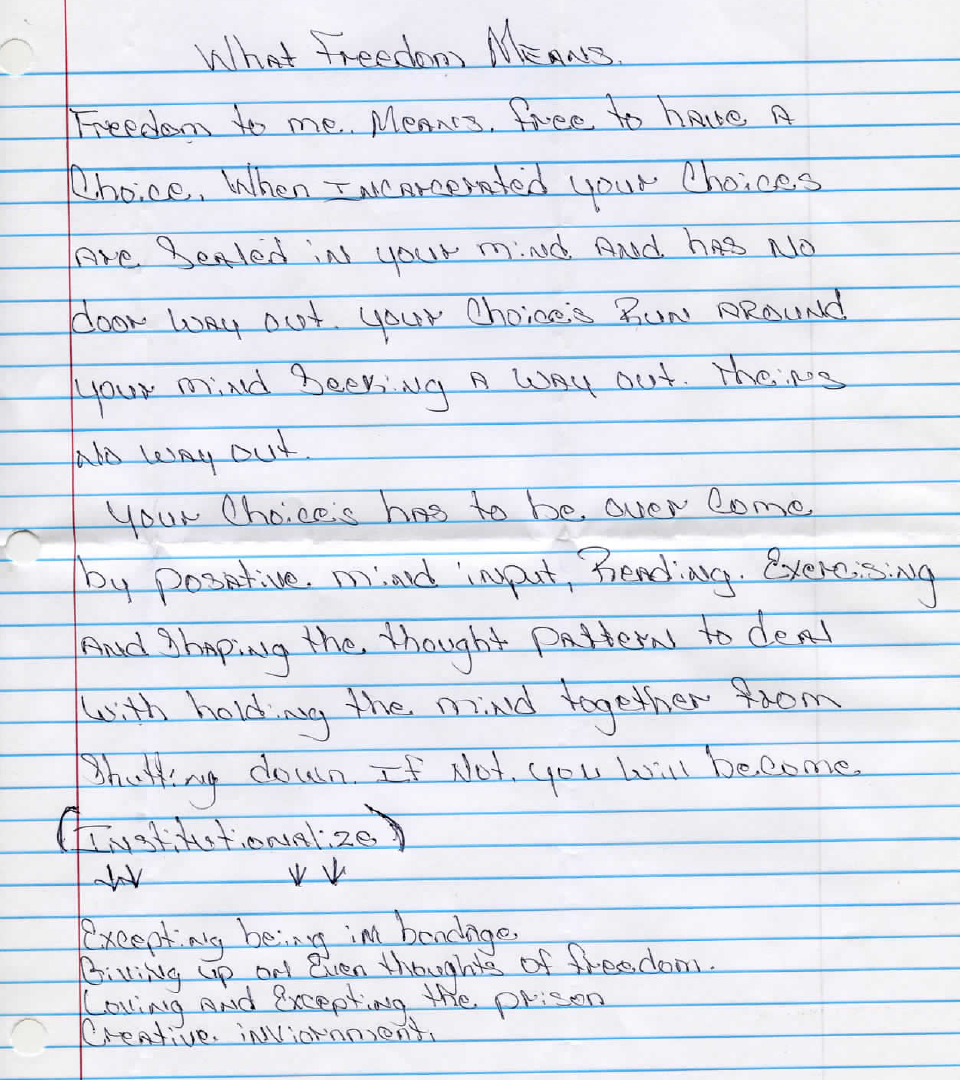 What Freedom Means.
Freedom to me. Means. free to have A
Choice. When Incarcerated your Choices
Are Sealed in your mind And has No
door way out. your Choice's Run AROUND
your mind Seeking A Way out. Theirs
No way out.
your Choice's has to be over Come
by posative. mind input, Reading. Exercising
And Shaping the thought pattern to deal
With holding the mind together from
Shutting down. If Not. you Will become
(Institutionalize)
Excepting being in bondage
Giving up on Even thoughts of freedom.
Loving and Excepting the prison
Creative inviornment.